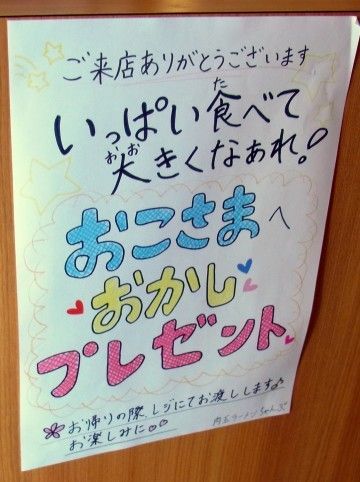 ご来店ありがとうございます
いっぱい食べて
大きくなあれ!
おこさまへ
おかし
プレゼント
お帰りの際、レジにてお渡しします♪
お楽しみに♡♡